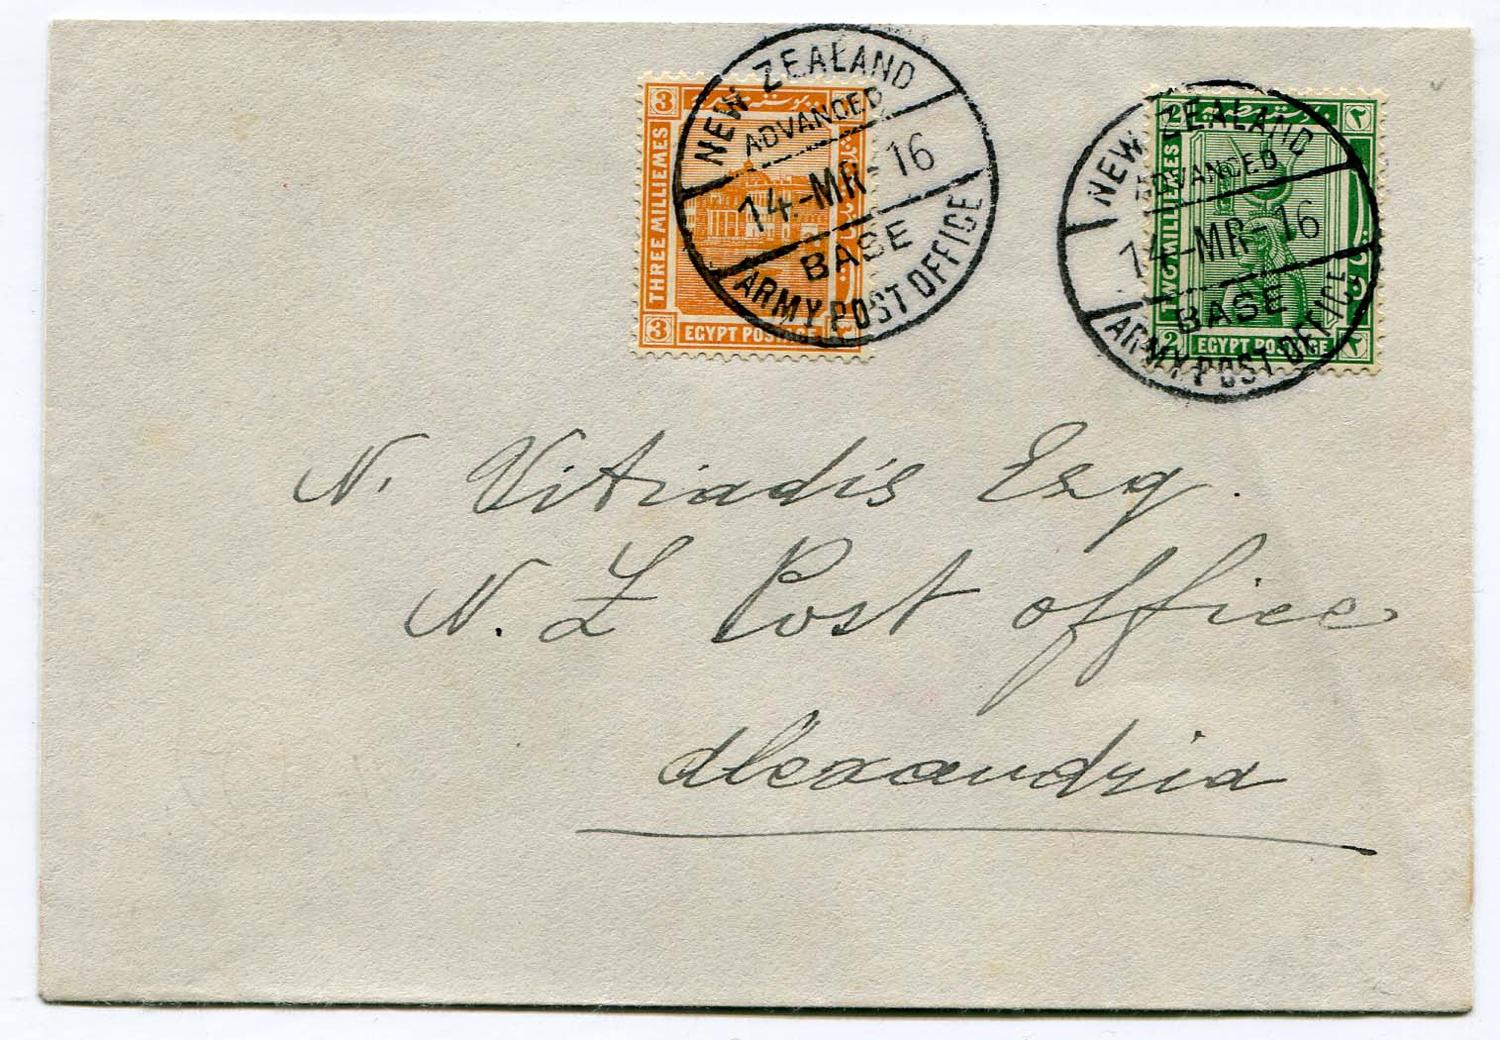 3
بوستة مصرية
THREE MILLIEMES
3 EGYPT POSTAGE ٣
NEW ZEALAND
ADVANCED
14.-MR-16
BASE
ARMY POST OFFICE
2 ٢
TWO MILLIEMES
2 EGYPT POSTAGE ٢
NEW ZEALAND
ADVANCED
14-MR-16
BASE
ARMY POST OFFICE
N. Vitiadis Esq.
N. Z Post office
Alexandria